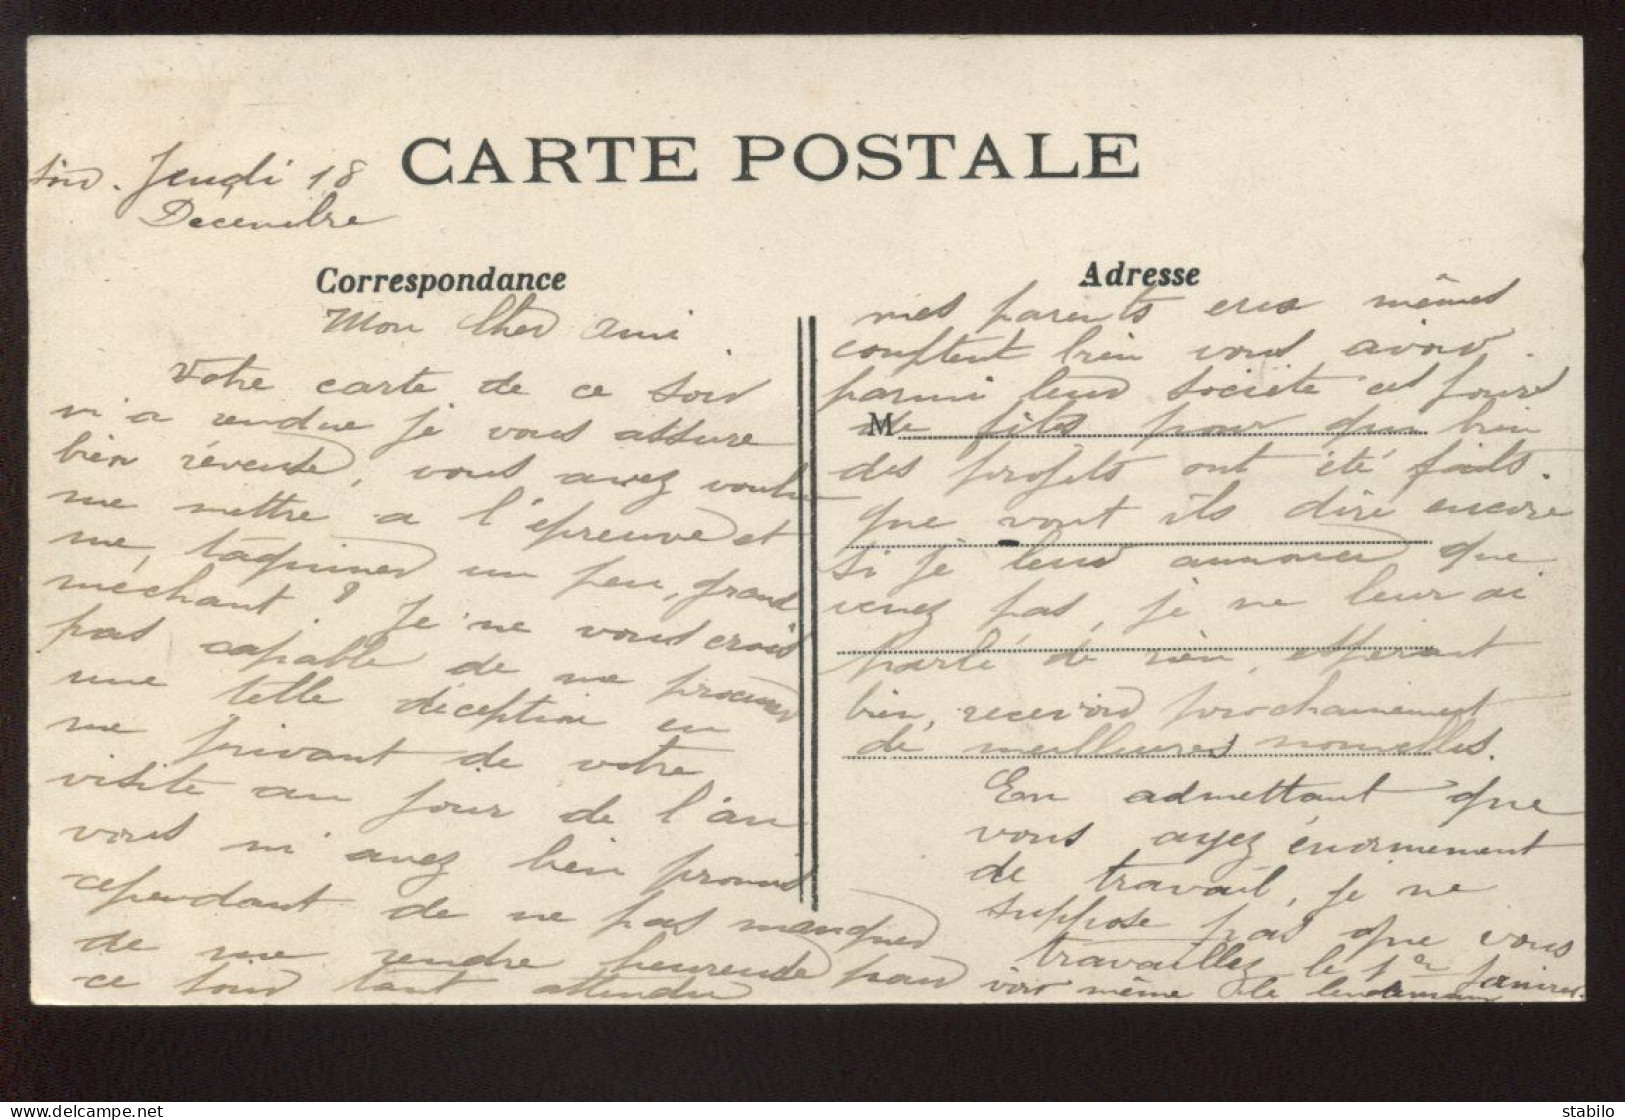 CARTE POSTALE
Jeudi 18
Decembre
Correspondance
Mon Cher Ami
Votre carte de ce soir
m'a rendue je vous assure
bien rêveuse, vous avez voulu
me mettre a l'épreuve et
me, taquiner un peu, grand
méchant? Je ne vous crois
pas capable de me procurer
une telle déception en
me privant de votre
visite au jour de l'an
vous m'avez bien promis
cependant de ne pas manquer
de me rendre heureuse pour
ce jour tant attendu
Adresse
mes parents eux mêmes
comptent bien vous avoir
parmi leur société ces jours
M
de fêtes pour qui bien
des projets ont été faits.
que vont ils dire encore
si je leur annonce que
venez pas, je ne leur ai
parlé de rien, esperant
bien, recevoir prochainement
de meilleures nouvelles.
En admettant que
vous ayez énormement
de travail, je ne
suppose pas que vous
travaillez le 1er Janvier
voir même le lendemain
delcampe.net
stabilo